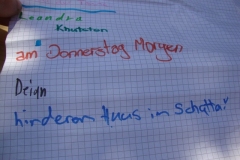 Leandra
am Donnerstag Morgen
Deian
hinderem Huus im Schatta!